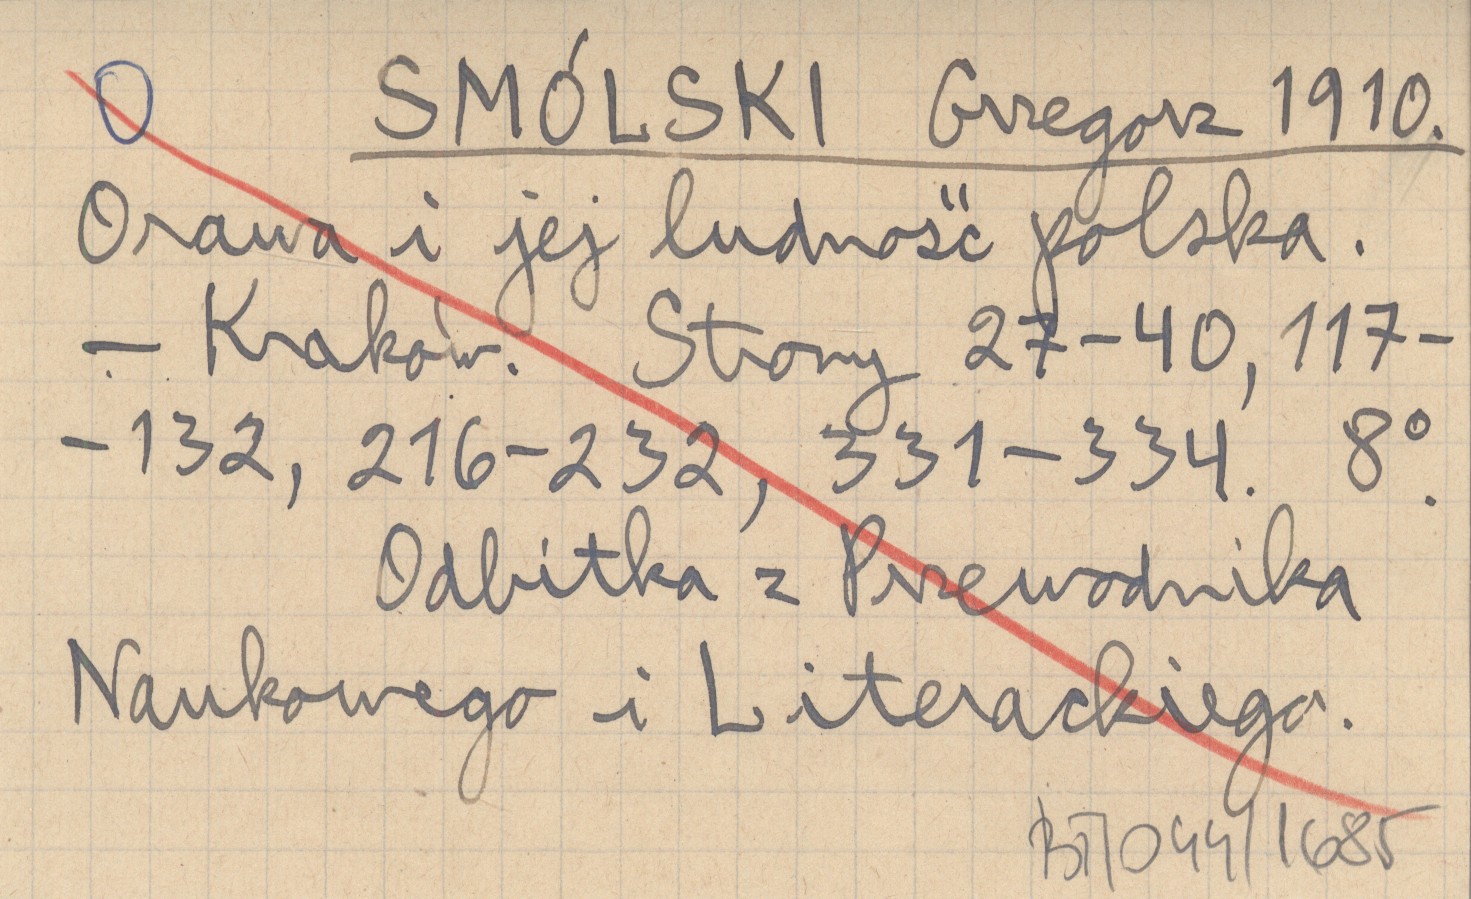 O SMÓLSKI Grzegorz 1910.
Orawa i jej ludność polska.
— Kraków. Strony 27-40, 117-
-132, 216-232, 331-334. 8°.
Odbitka z Przewodnika
Naukowego i Literackiego.
BT/044/1685